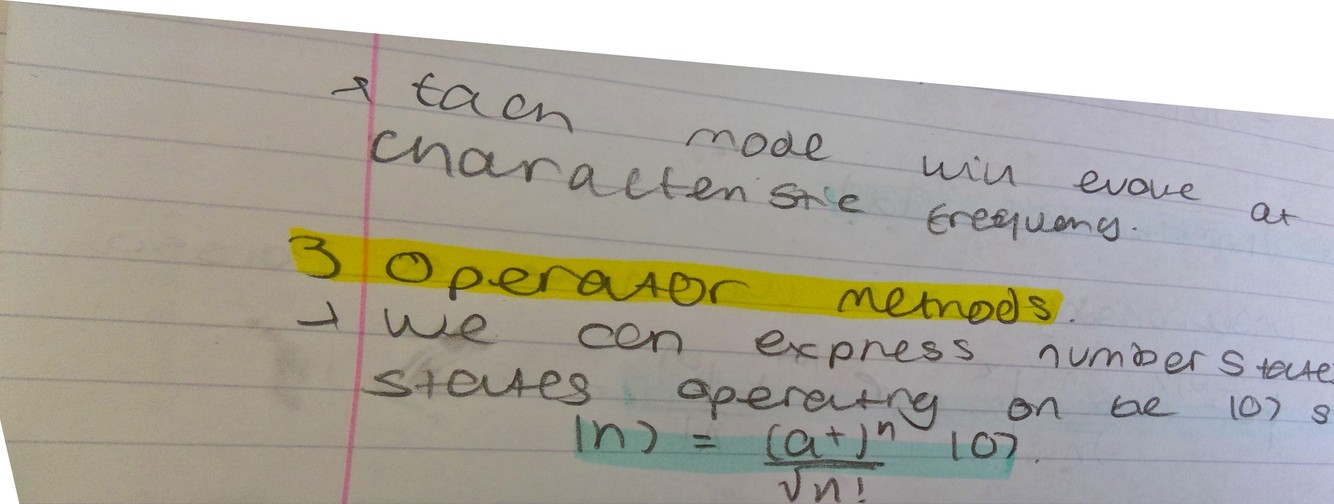 → Each mode will evolve at
characteristic frequency.
3 Operator methods.
→ We can express number state
states operating on be |0> s
|n> = (a†)^n / √n! |0>.